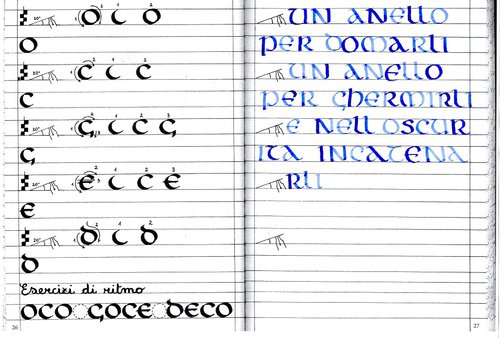 O C O
O
20° C C C
C
20° G C C G
G
20° E C C E
E
20° D C D
D
Esercizi di ritmo
OCO GOCE DECO
26
UN ANELLO
PER DOMARLI
UN ANELLO
PER GHERMIRLI
E NELL OSCUR
ITA INCATENA
RLI
27